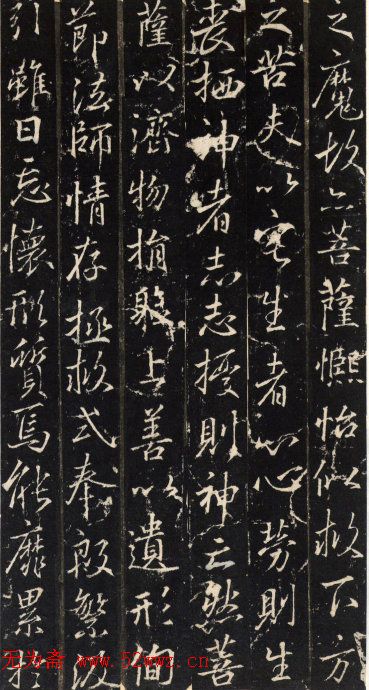 之魔故菩薩救下方
之苦夫以宅生者心心勞則生
喪栖神者志志擾則神亡然菩
薩以濟物捐軀上善以遺形徇
節法師情存拯救式奉殷繁汲
引雖日忘懷形質焉能靡累於
无为斋 www.52wwz.cn